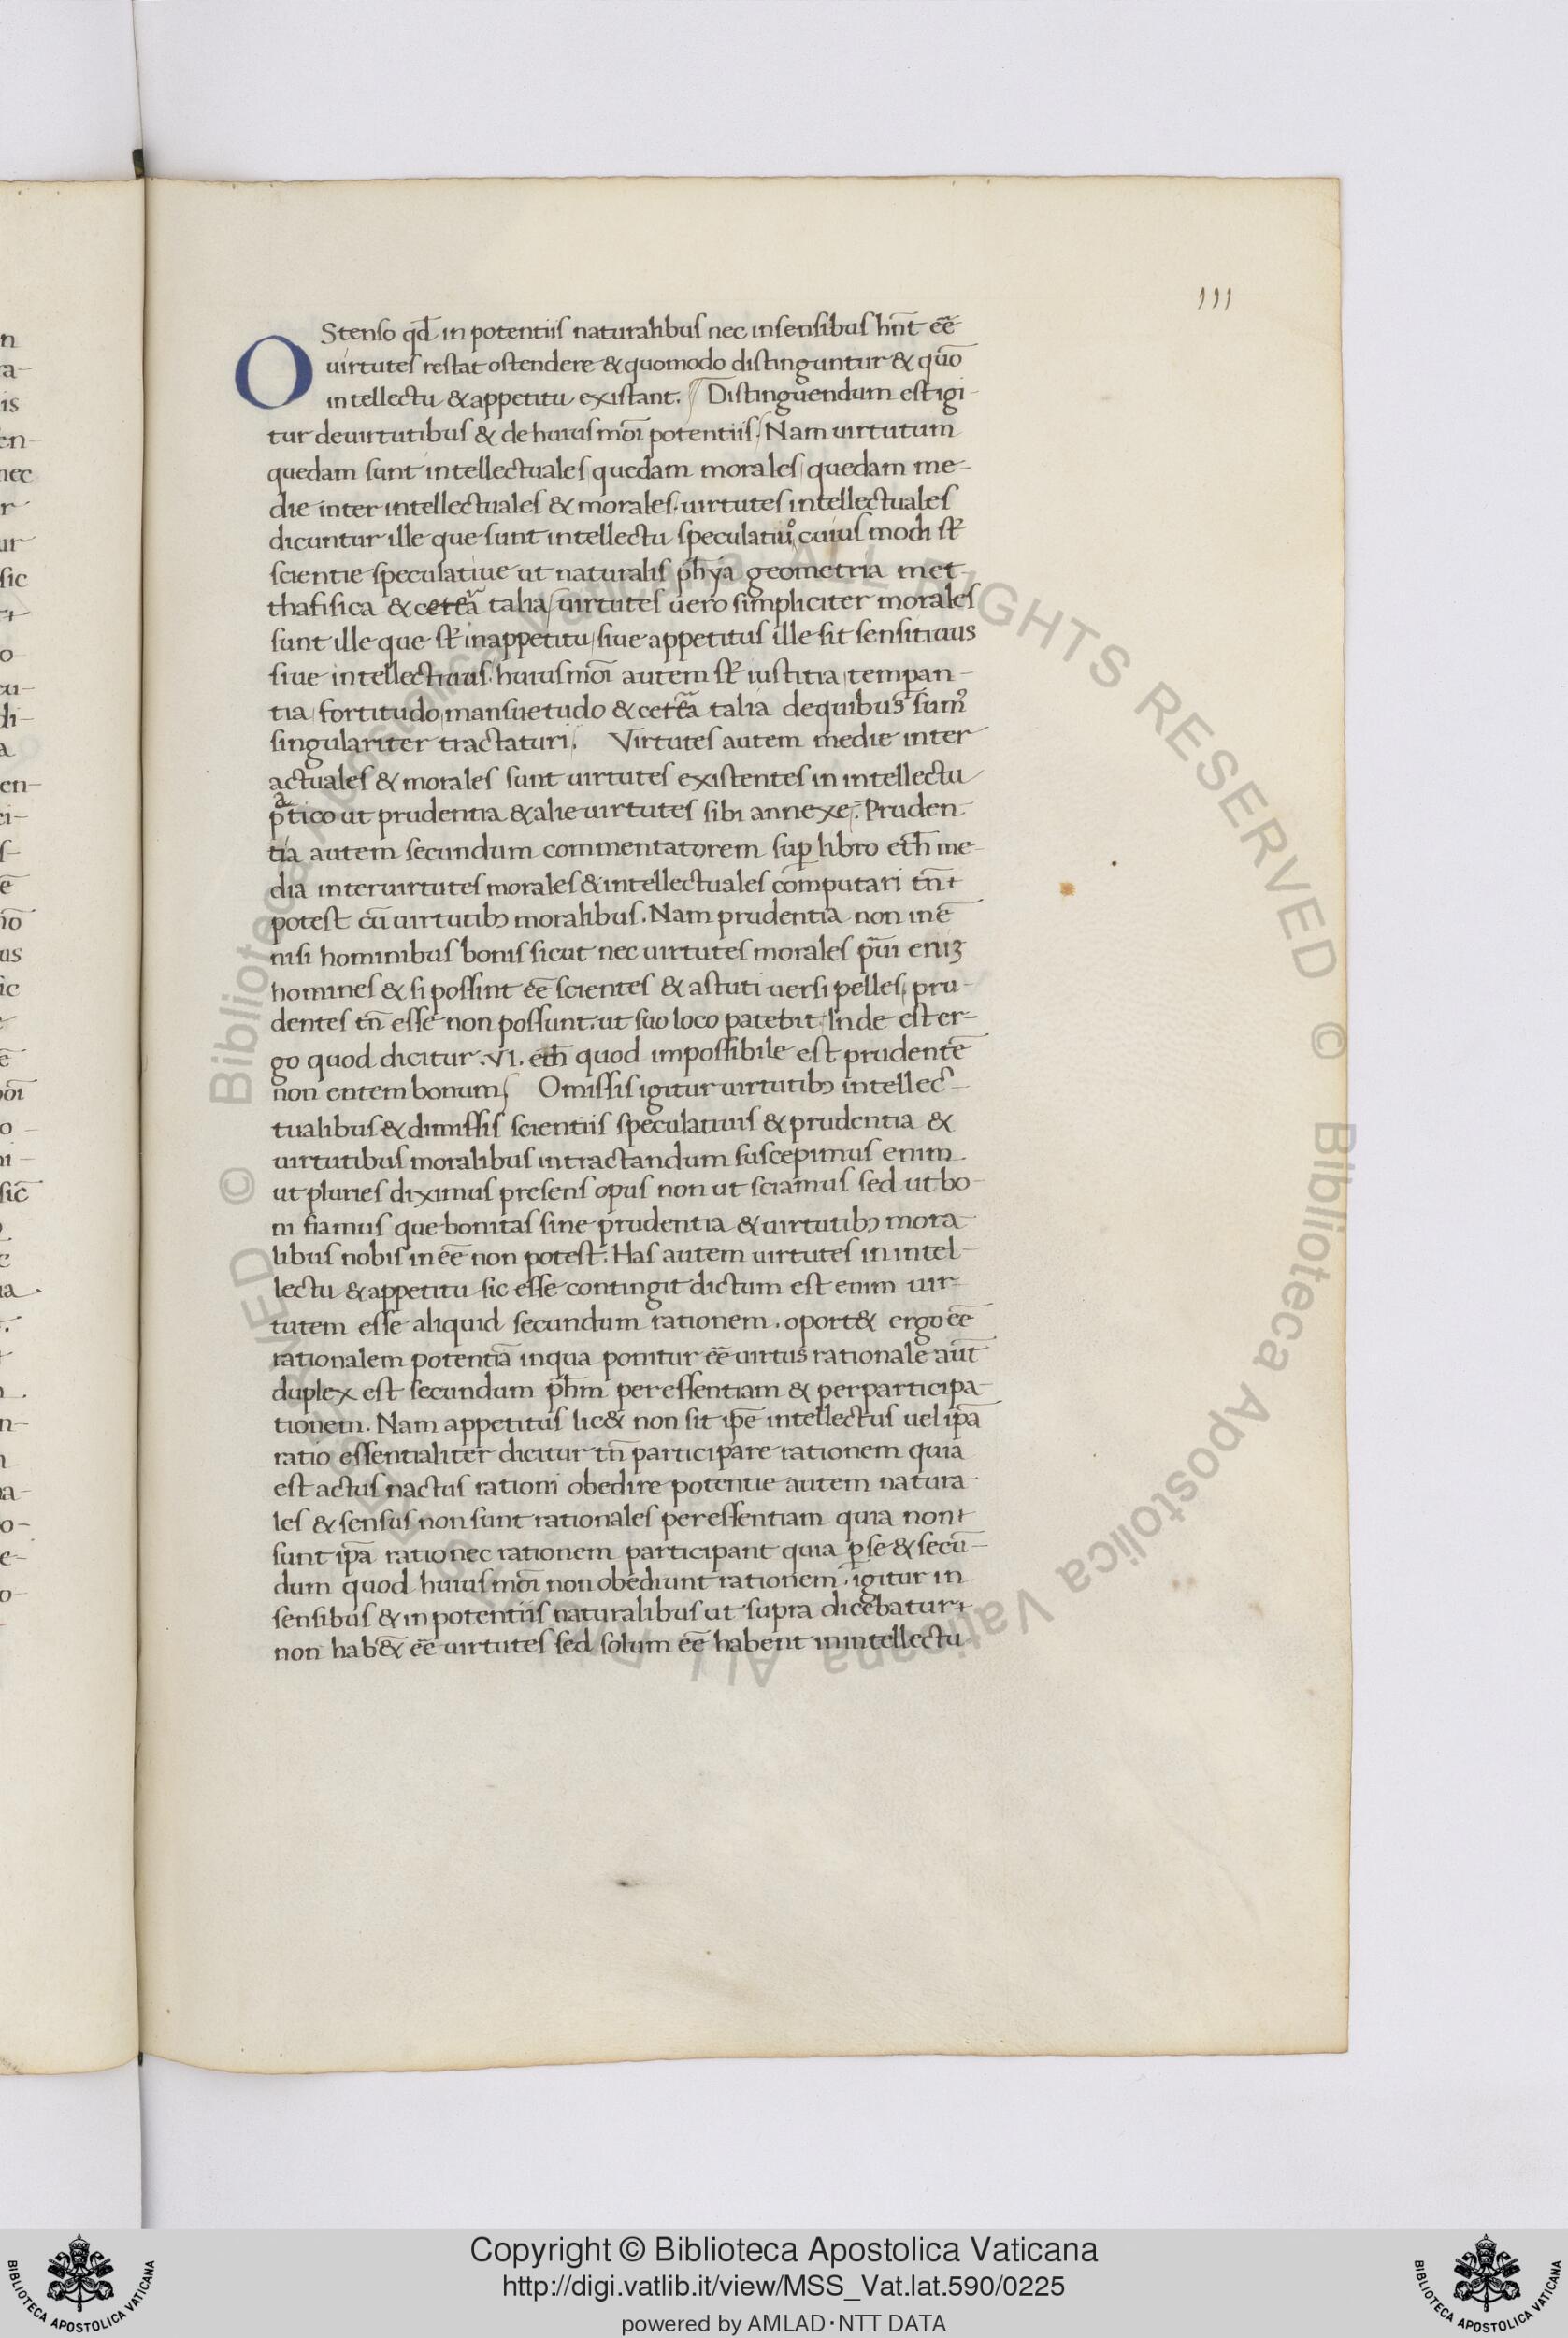 111
OStenso qd̄ in potentiis naturalibus nec in sensibus hn̄t eē
uirtutes restat ostendere & quomodo distinguntur & quō
in tellectu & appetitu existant. Distinguendum est igi-
tur de uirtutibus & de huius mōi potentiis. Nam uirtutum
quedam sunt intellectuales quedam morales quedam me-
die inter intellectuales & morales. uirtutes intellectuales
dicuntur ille que sunt intellectu speculatiuo cuius modi st̄
scientie speculatiue ut naturalis ph̄ya geometria met-
thafisica & cetēa talia uirtutes uero simpliciter morales
sunt ille que st̄ in appetitu siue appetitus ille sit sensitiuus
siue intellectiuus. huius mōi autem st̄ iustitia temꝑan-
tia fortitudo mansuetudo & cetēa talia de quibus sumꝰ
singulariter tractaturi. Virtutes autem medie inter
actuales & morales sunt uirtutes existentes in intellectu
pͣtico ut prudentia & alie uirtutes sibi annexe. Pruden-
tia autem secundum commentatorem suꝑ libro eth̄ me-
dia inter uirtutes morales & intellectuales computari tn̄
potest cū uirtutibꝫ moralibus. Nam prudentia non in ē
nisi hominibus bonis sicut nec uirtutes morales pͣui eniꝫ
homines & si possint eē scientes & astuti uersi pelles pru-
dentes tn̄ esse non possunt. ut suo loco patebit. Inde est er-
go quod dicitur .VI. eth̄ quod impossibile est prudentē
non entem bonum. Omissis igitur uirtutibꝫ intellec-
tualibus & dimissis scientiis speculatiuis & prudentia &
uirtutibus moralibus in tractandum suscepimus enim.
ut pluries diximus presens opus non ut sciamus sed ut bo-
ni fiamus que bonitas sine prudentia & uirtutibꝫ mora-
libus nobis in eē non potest. Has autem uirtutes in intel-
lectu & appetitu sic esse contingit dictum est enim uir-
tutem esse aliquid secundum rationem. oport& ergo eē
rationalem potentiā in qua ponitur eē uirtus rationale aūt
duplex est secundum ph̄m per essentiam & per participa-
tionem. Nam appetitus lic& non sit ip̄e intellectus uel ip̄a
ratio essentialiter dicitur tn̄ participare rationem quia
est actus nactus rationi obedire potentie autem natura-
les & sensus non sunt rationales per essentiam quia non
sunt ip̄a ratio nec rationem participant quia ꝑ se & secū-
dum quod huius mōi non obediunt rationem. igitur in
sensibus & in potentiis naturalibus ut supra dicebatur
non hab& eē uirtutes sed solum eē habent in intellectu
Copyright © Biblioteca Apostolica Vaticana
http://digi.vatlib.it/view/MSS_Vat.lat.590/0225
powered by AMLAD·NTT DATA